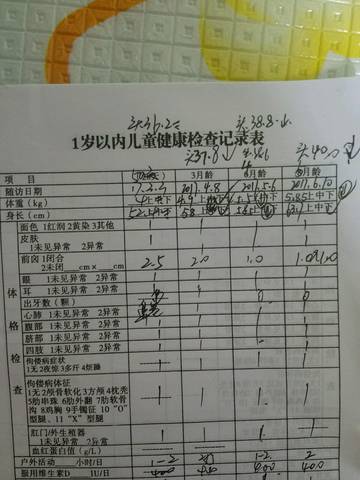 头36.2
头38.8
1岁以内儿童健康检查记录表
头37.8 头40
项 目 3月龄
随访日期 17.3.3 2017.4.8 2017.5.6 2017.6.10
体重(kg) 上中下 4.9 上 5.5 5.85上中下
身长(cm) 52上中下 58 上 63 上中下
面色 1红润2黄染3其他
皮肤 1 1 1 1
1未见异常 2异常
前囟1闭合 2.5 2.0 1.0 1.0
2未闭___cm×___cm
眼 1未见异常 2异常 1 1 1 1
耳 1未见异常 2异常 1 1 1
出牙数(颗) 0 0
体格检查
心肺 1未见异常 2异常 1 1 1
腹部 1未见异常 2异常 1 1 1 1
脐部 1未见异常 2异常 1 1 1 1
四肢 1未见异常 2异常 1 1 1 1
佝偻病症状
1无2夜惊3多汗4烦躁
佝偻病体征
1无2颅骨软化3方颅4枕秃
5肋串珠 6肋外翻 7肋软骨
沟 8鸡胸 9手镯征 10“O”
型腿、11“X”型腿
肛门/外生殖器
1未见异常 2异常
血红蛋白值(g/L)
户外活动 小时/日 1-2 1-2 2
服用维生素D IU/日 400 400 400